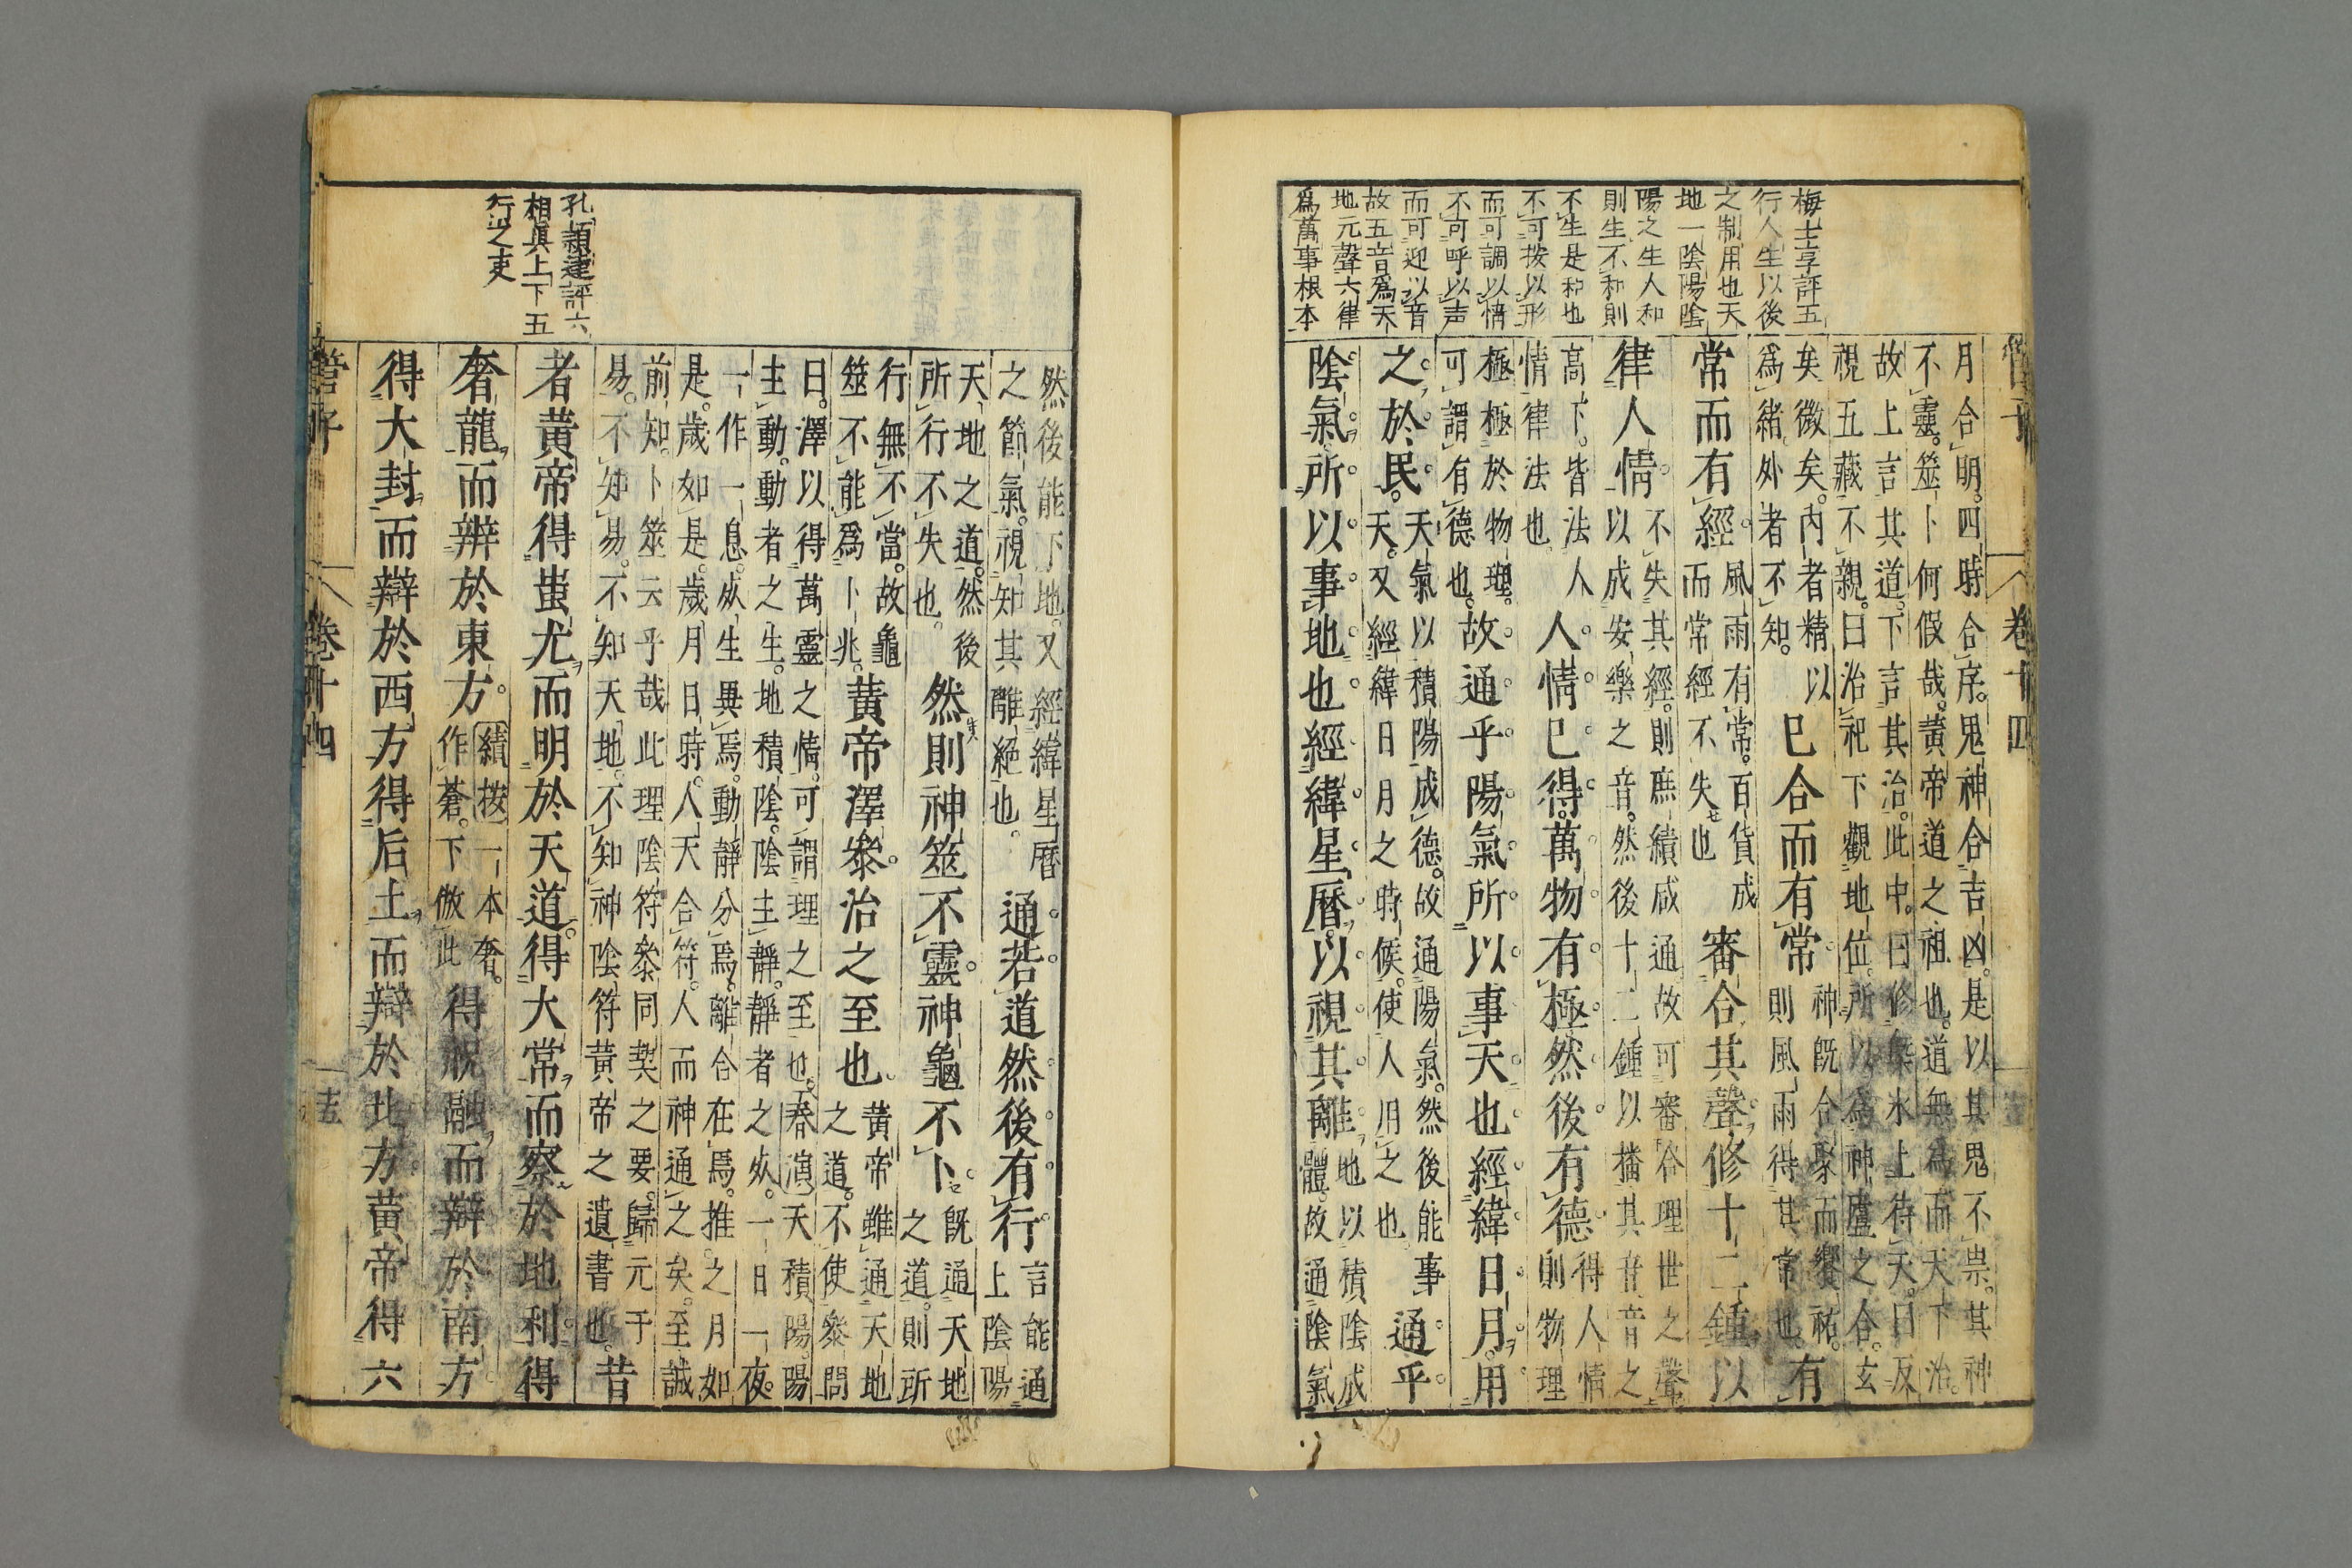 梅士享評五
行人生以後
之制用也天
地一陰陽陰
陽之生人和
則生不和則
不生是和也
不可按以形
而可調以情
不可呼以声
而可迎以音
故五音為天
地元聲六律
為萬事根本
管子 卷十四
月合明。四時合序。鬼神合吉凶。是以其鬼不祟。其神
不靈。筮卜何假哉。黃帝道之祖也。道無為而天下治。
故上言其道。下言其治。此中。曰修槩水上待天。曰反
視五藏不親。曰治祀下觀地位。所以為神廬之合。玄
矣微矣。內者精以
為緒。外者不知。
已合而有常
神既合聚而饗祐。
則風雨得其常也。
有
常而有經
風雨有常。百貨成
而常經不失也
審合其聲修十二鍾以
律人情
不失其經。則庶績咸通故可審合理世之聲
以成安樂之音。然後十二鍾以播其音音之
高下。皆法人
情律法也
人情已得。萬物有極。然後有德
得人情
則物理
極極於物理。
可謂有德也。
故通乎陽氣。所以事天也。經緯日月。用
之於民。
天氣以積陽成德。故通陽氣。然後能事
天。又經緯日月之時候。使人用之也
通乎
陰氣。所以事地也。經緯星曆。以視其離
地以積陰成
體。故通陰氣
然後能下地。又經緯星曆
之節氣。視知其離絕也。
通若道然後有行
言能通
上陰陽
天地之道。然後
所行行不失也。
然則神筮不靈。神龜不卜
既通天地
之道。則所
行無不當。故龜
筮不能為卜兆。
黃帝澤參。治之至也
黃帝雖通天地
之道。不使參問
曰。澤以得萬靈之情。可謂理之至也。春演天積陽。陽
主動。動者之生。地積陰。陰主靜。靜者之㱔。一日一夜。
一作一息。㱔生異焉。動靜分焉。離合在焉。推之月如
是。歲如是。歲月日時。人天合符。人而神通之矣。至誠
前知。卜筮云乎哉此理陰符參同契之要。歸元于
易。不知易。不知天地。不知神陰符黃帝之遺書也。
昔
者黃帝得蚩尤而明於天道。得大常而察於地利。得
奢龍而辨於東方。
績按一本奢。
作蒼。下倣此
得祝融而辯於南方
得大封而辯於西方得后土而辯於北方。黃帝得六
孔穎達評六
相眞上下五
行之吏
管子 卷十四 十五